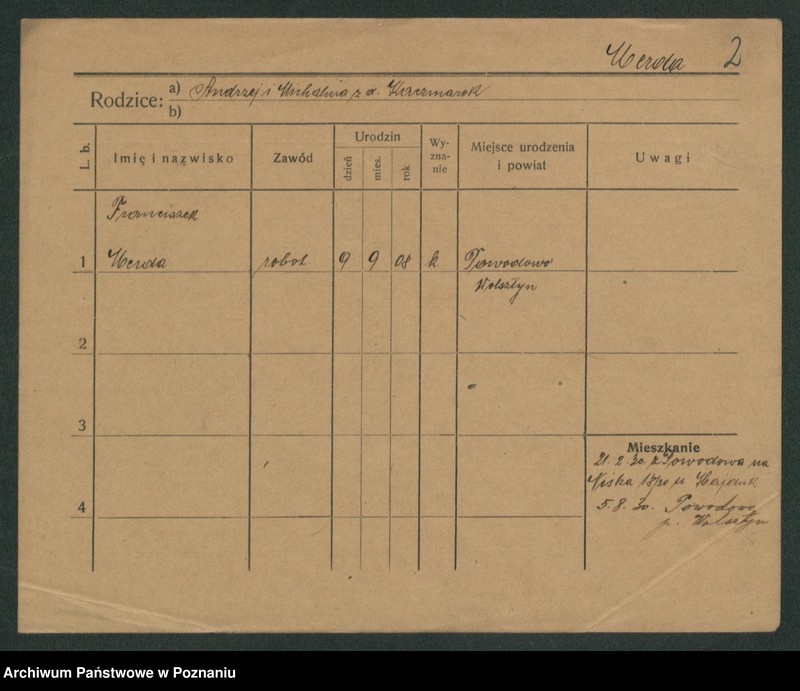 Merda 2
Rodzice: a) Andrzej i Michalina z d. Kaczmarek
b)
L. b.
Imię i nazwisko
Zawód
Urodzin
dzień
mies.
rok
Wy-
zna-
nie
Miejsce urodzenia
i powiat
Uwagi
Franciszek
1 Merda robot. 9 9 08 k. Powodowo
Wolsztyn
2
3
Mieszkanie
21. 2. 30. z Powodowa na
Niska u Hajduk
4
5. 8. 30. Powodowo
p. Wolsztyn
Archiwum Państwowe w Poznaniu